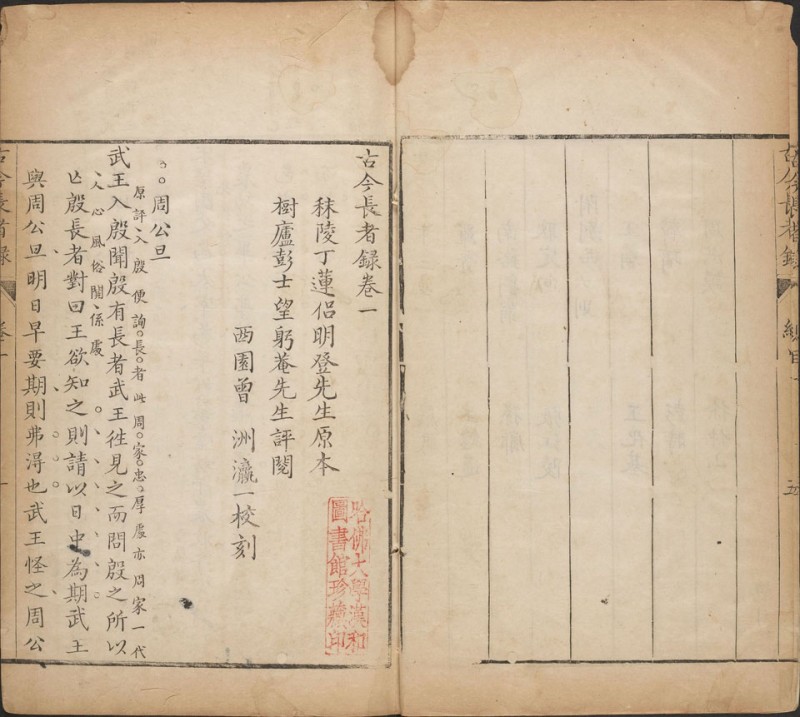 古今長者錄
總目
五
古今長者錄卷一
秣陵丁蓮侶明登先生原本
樹廬彭士望躬菴先生評閱
西園曾洲瀛一校刻
哈佛大學漢和
圖書館珍藏印
周公旦
原評入殷便詢長者此周家忠厚處亦周家一代
人心風俗關係處
武王入殷聞殷有長者武王徃見之而問殷之所以
亾殷長者對曰王欲知之則請以日中為期武王
與周公旦明日早要期則弗得也武王怪之周公
古今長者錄
卷一
一